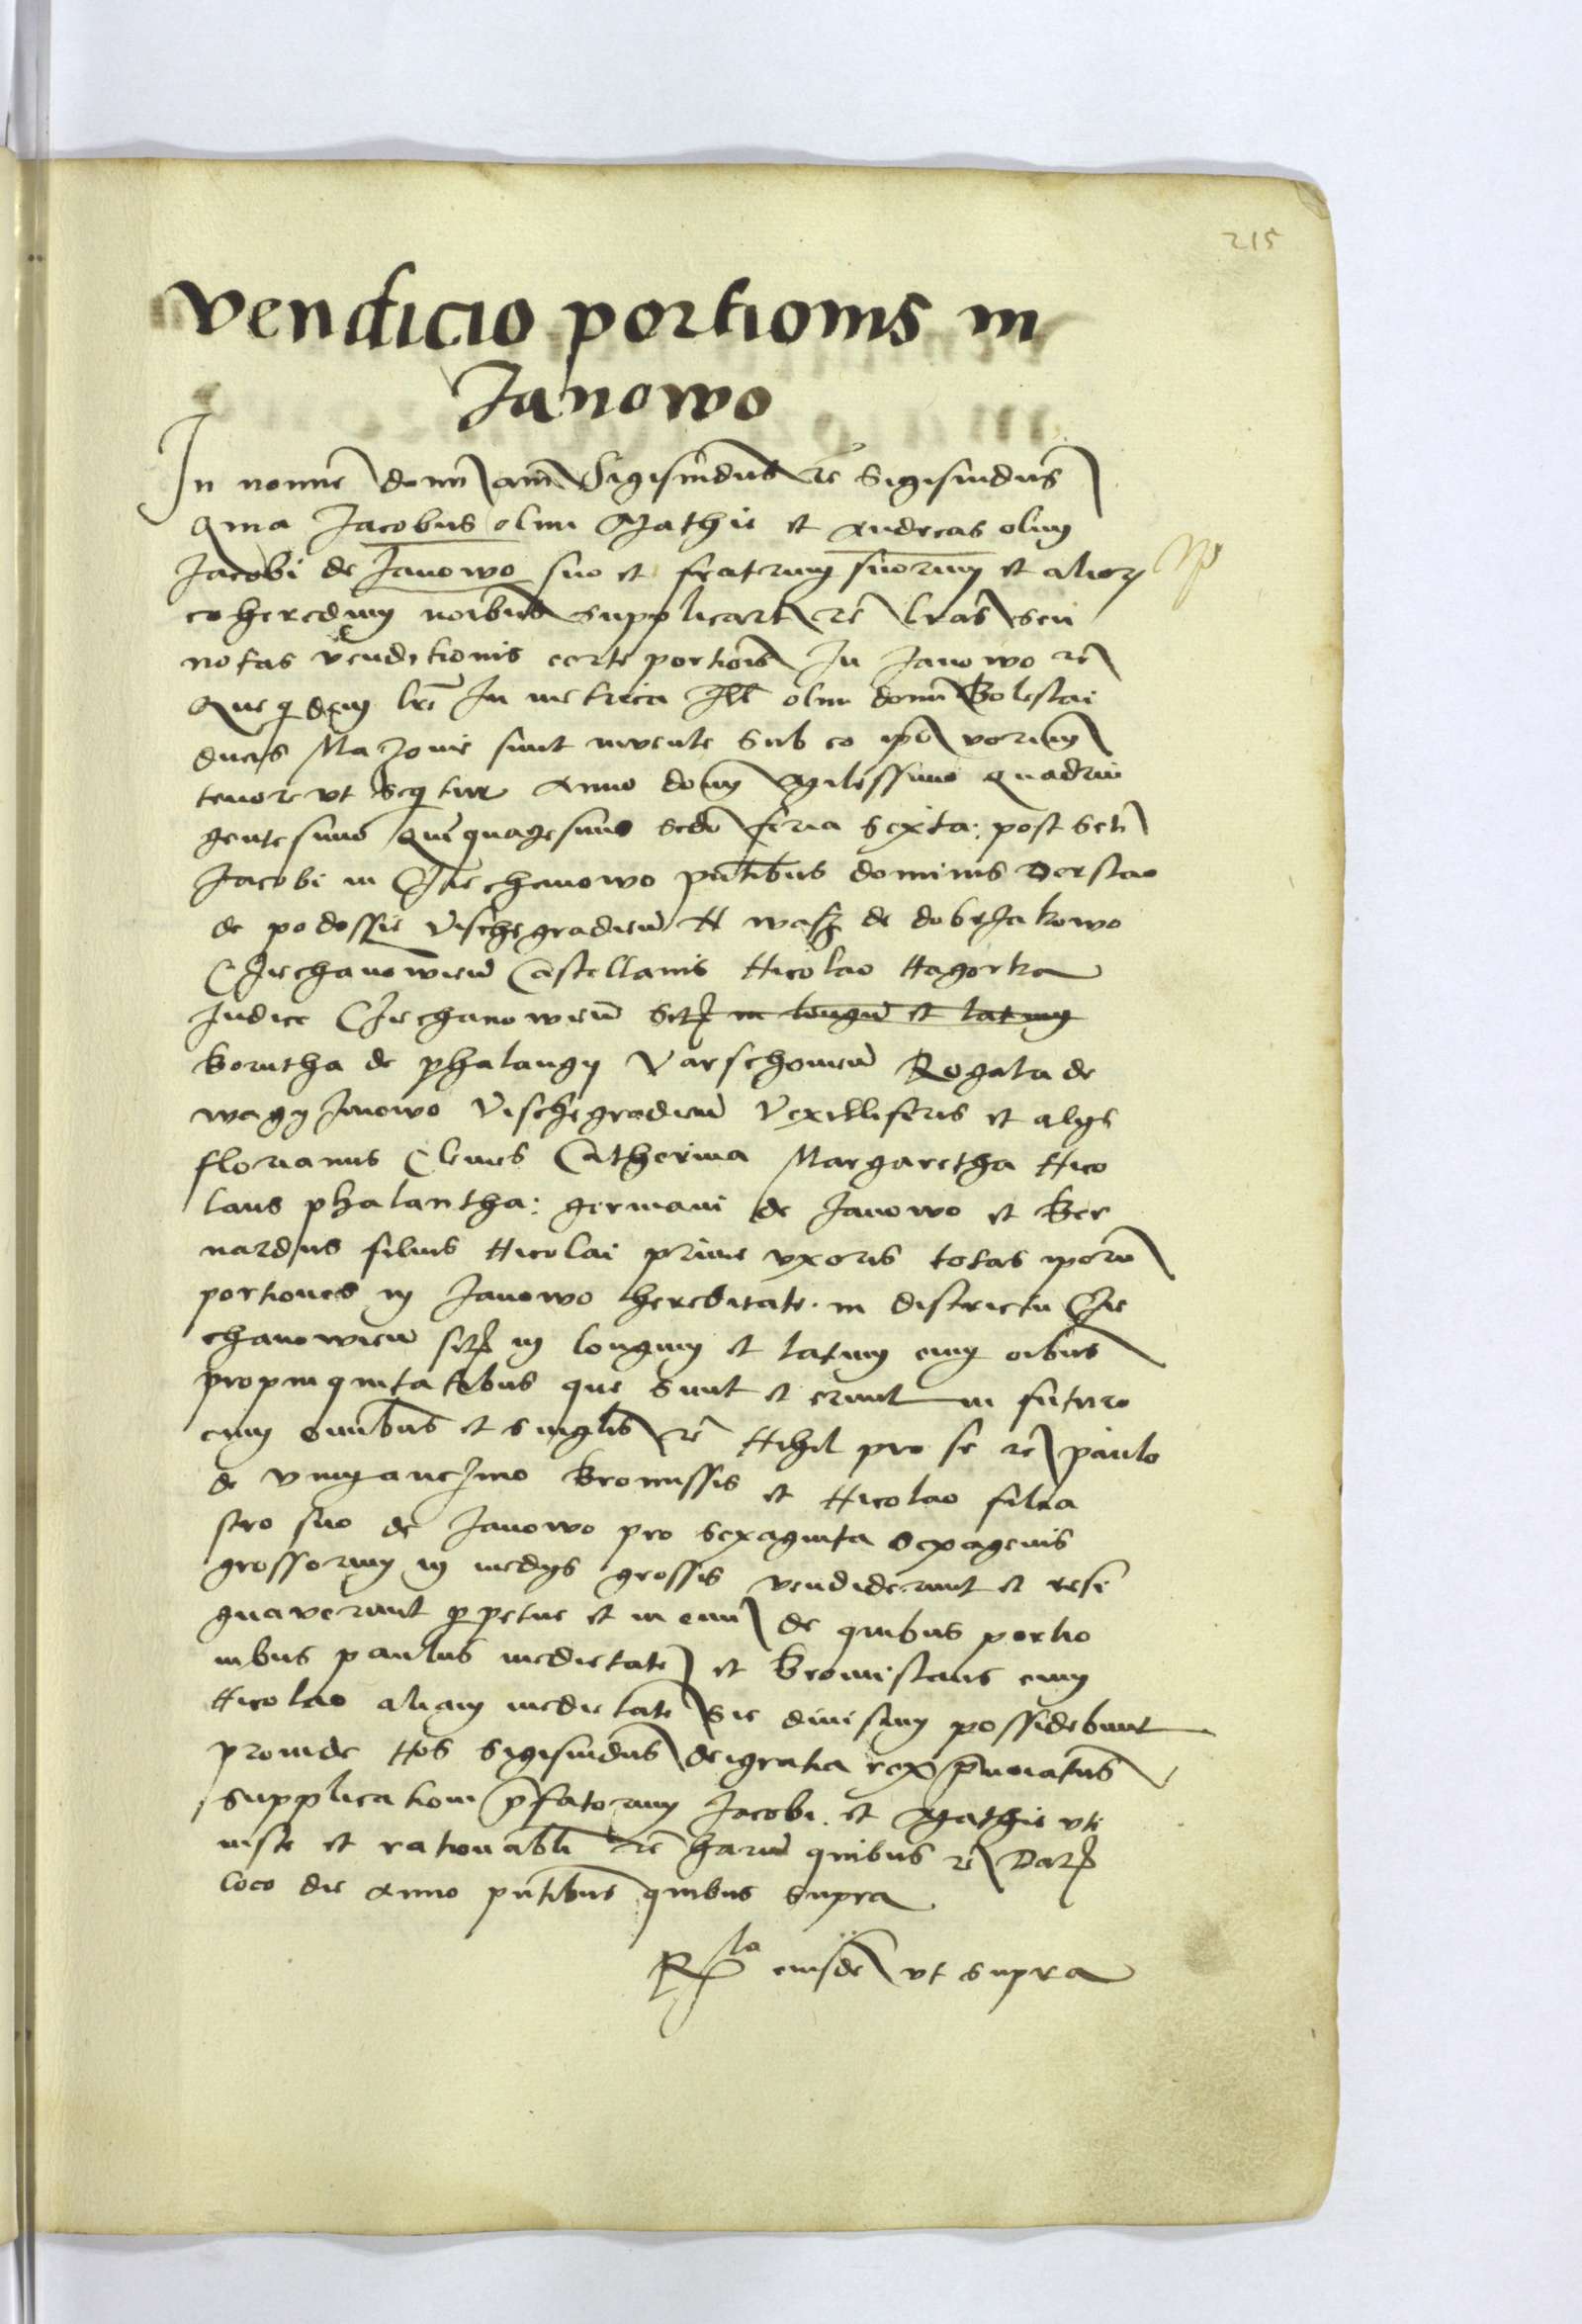 215
Vendicio portionis in
Janowo
In nomine domi am Sigismdus rc Sigismdus
quia Jacobus olim Mathie et Andreas olim
Jacobi de Janowo suo et fratrum suorum et alior
coheredum noibus supplicart rc lras seu
notas venditionis certe portiois In Janowo rc
que quidem lre In metrica Ill olim domi Boleslai
ducis Mazovie sunt invente sub eo ipo verum
tenore ut sequitur Anno domini Millessimo quadrin
gentesimo quinquagesimo scdo feria sexta post scti
Jacobi in Cziechanowo pntibus dominis Derslao
de podossie Vischegradien N de dobrzakowo
Cziechanowien Castellanis Nicolao Nagorka
Judice Cziechanowien Sct in longu et latum
Borutha de phalangy Varschovien Rogala de
Vischegradien Vexilliferis et alys
florianus Clemes Catherina Margaretha Nico
laus phalantha: germani de Janowo et Ber
nardus filius Nicolai prime uxoris totas iporu
portiones in Janowo hereditate in districtu Czie
chanowien sit in longum et latum cum oibus
propinquitatibus que sunt et erunt in futuro
cum omibus et singlis rc Nihil pro se rc paulo
de et Nicolao filia
stro suo de Janowo pro sexaginta sexagenis
grossorum in medys grossis vendiderunt et resi
gnaverunt perpetue et in evu de quibus portio
nibus paulus medietate et Bronislaus cum
Nicolao aliam medietate sic divisim possidebunt
proinde Nos Sigismdus dei gratia rex prenoiatus
supplicationi prefatorum Jacobi et Mathie uti
iuste et rationabli rc harum quibus rc Dat
loco die anno pntibus quibus supra
Rla eiusde ut supra